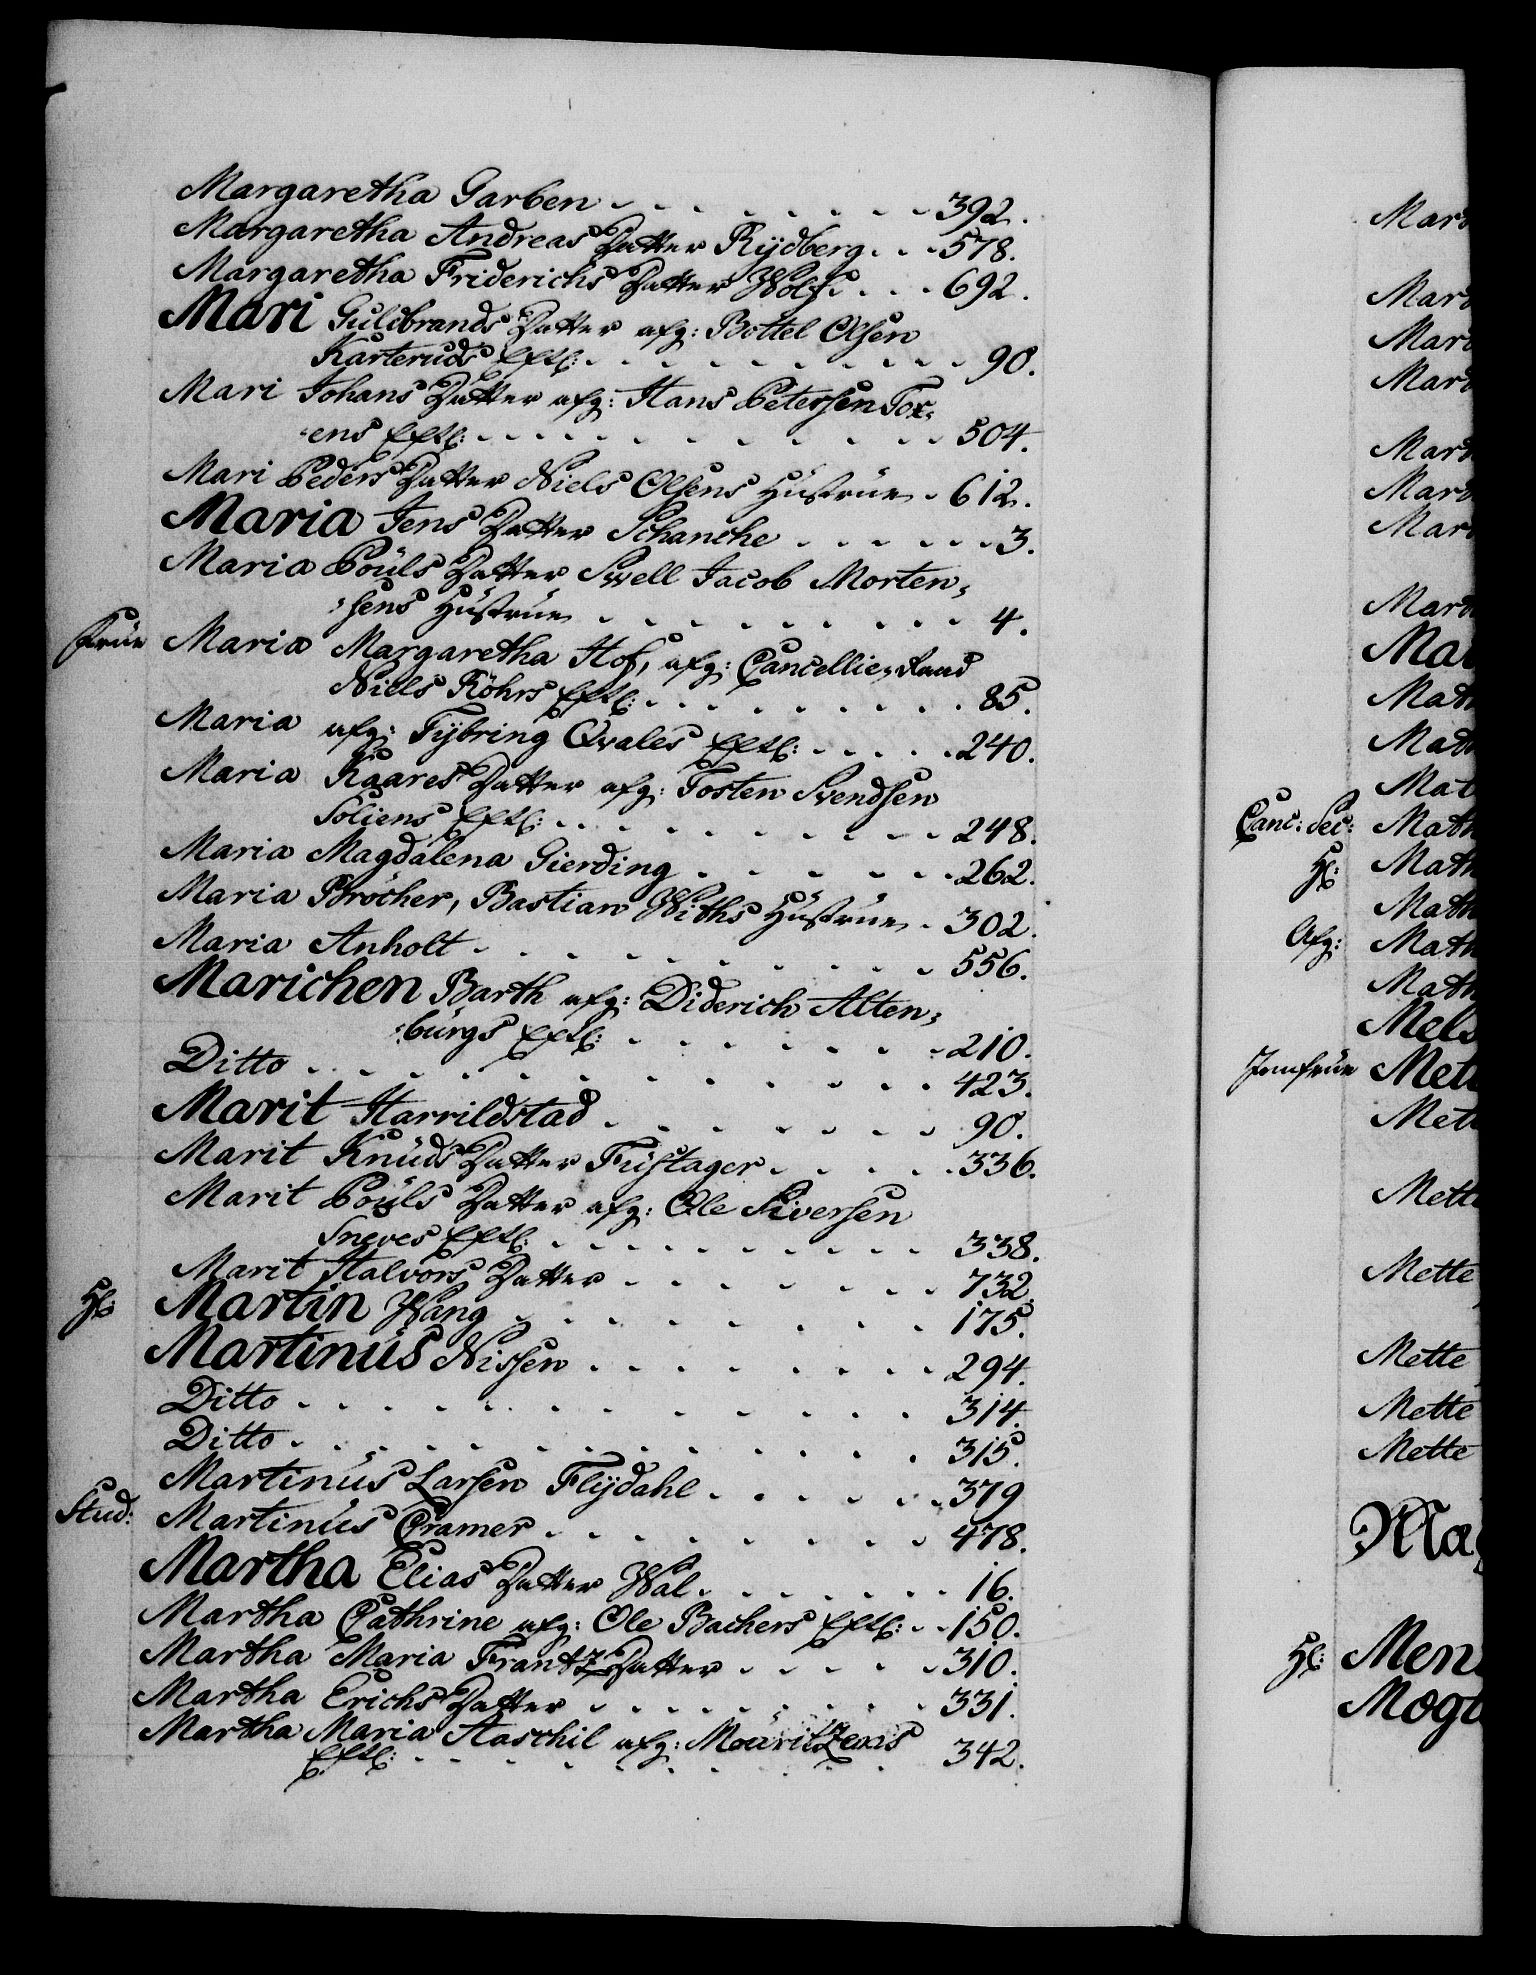 Margaretha Garben - - - - - - - - 392.
Margaretha Andreas Datter Rÿdberg. - - 578.
Margaretha Friderichs Datter Wolf. - - - 692.
Mari Guldbrands Datter afg: Bottel Olsen
Karteruds Eftl: - - - - - - - - - 90.
Mari Johans Datter afg: Hans Petersen Tox=
=ens Eftl: - - - - - - - - - - - 504.
Mari Peders Datter Niels Olsens Hustrue - 612.
Maria Jens Datter Schanche - - - - - - 3.
Maria Pouls Datter Swell Jacob Morten=
=sens Hustrue - - - - - - - - - 4.
Frue Maria Margaretha Hof, afg: Cancellie=Raad
Niels Röhrs Eftl: - - - - - - - - - 85.
Maria afg: Tÿbring Qvales Eftl: - - - - - 240.
Maria Kaares Datter afg: Tosten Svendsen
Soliens Eftl: - - - - - - - - - - 248.
Maria Magdalena Gierding - - - - - - 262.
Maria Bröcher, Bastian Withs Hustrue - 302.
Maria Anholt - - - - - - - - - - 556.
Marichen Barth afg: Diderich Alten=
=burgs Eftl: - - - - - - - - 210.
Ditto - - - - - - - - - - - - - 423.
Marit Harrildstad - - - - - - - - 90.
Marit Knuds Datter Fustager - - - - - 336.
Marit Pouls Datter afg: Ole Siversen
Sneves Eftl: - - - - - - - - - - 338.
Marit Halvors Datter - - - - - - - 732.
Hr: Martin Wang - - - - - - - - - 175.
Martinus Nissen - - - - - - - - 294.
Ditto - - - - - - - - - - - - - 314.
Ditto - - - - - - - - - - - - - 315.
Martinus Larsen Flÿdahl - - - - - - 379
Stud: Martinus Cramer - - - - - - - - 478.
Martha Elias Datter Wal - - - - - - 16.
Martha Cathrine afg: Ole Bachers Eftl: - - 150.
Martha Maria Frantz Datter - - - - - 310.
Martha Erichs Datter - - - - - - - - 331.
Martha Maria Staschil afg: Mouritzens
Eftl: - - - - - - - - - - - 342.
Mar
Mar
Mar
Mar
Mar
Mar
Mar
Mar
Ma
Mat
Mat
Mat
Canc: Sec: Math
Hr: Math
Math
Afg: Math
Math
Mels
Jomfrue Mett
Mett
Mette
Mette
Mette
Mette
Mette
Mag
Hr: Men
Mog